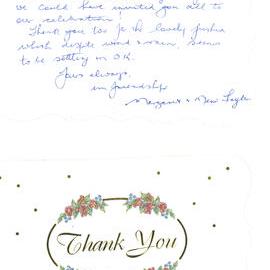 we could have invited you all to
our celebration!
Thank you too for the lovely fuchsia
which despite wind & rain, seems
to be settling in O.K.
Yours always,
in friendship
Margaret & Ken
Thank You